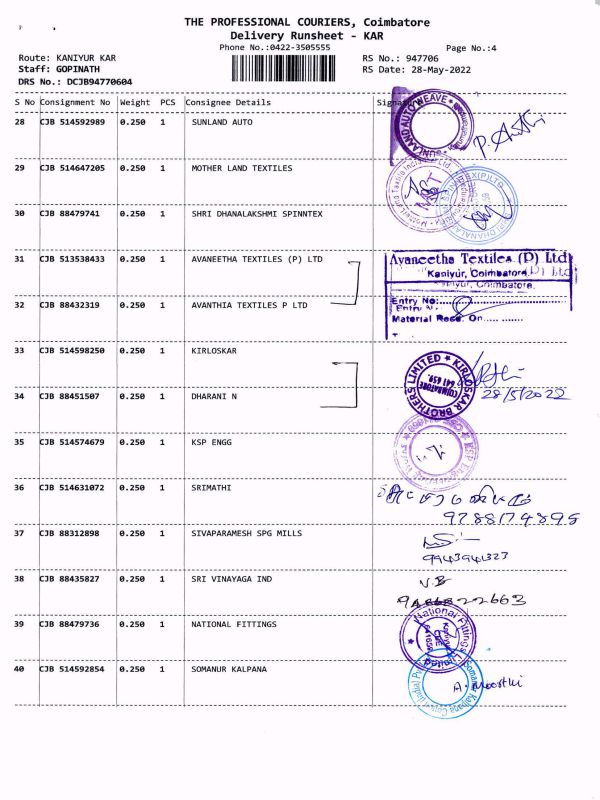 THE PROFESSIONAL COURIERS, Coimbatore
Delivery Runsheet - KAR
Phone No.:0422-3505555
Page No.:4
Route: KANIYUR KAR
RS No.: 947706
Staff: GOPINATH
RS Date: 28-May-2022
DRS No.: DCJB94770604
S No Consignment No Weight PCS Consignee Details Signature
28 CJB 514592989 0.250 1 SUNLAND AUTO
SUNLAAND AUTO WEAVE
29 CJB 514647205 0.250 1 MOTHER LAND TEXTILES
30 CJB 88479741 0.250 1 SHRI DHANALAKSHMI SPINNTEX
31 CJB 513538433 0.250 1 AVANEETHA TEXTILES (P) LTD
Avaneetha Textiles (P) Ltd
Kaniyur, Coimbatore
32 CJB 88432319 0.250 1 AVANTHIA TEXTILES P LTD
Entry No:
Material Recd. On
33 CJB 514598250 0.250 1 KIRLOSKAR
KIRLOSKAR BROTHERS LIMITED
COIMBATORE
641 659.
34 CJB 88451507 0.250 1 DHARANI N
28/5/2022
35 CJB 514574679 0.250 1 KSP ENGG
36 CJB 514631072 0.250 1 SRIMATHI
9788174895
37 CJB 88312898 0.250 1 SIVAPARAMESH SPG MILLS
9943941327
38 CJB 88435827 0.250 1 SRI VINAYAGA IND
V.B
39 CJB 88479736 0.250 1 NATIONAL FITTINGS
National Fittings Limited
40 CJB 514592854 0.250 1 SOMANUR KALPANA
A. Moorthi